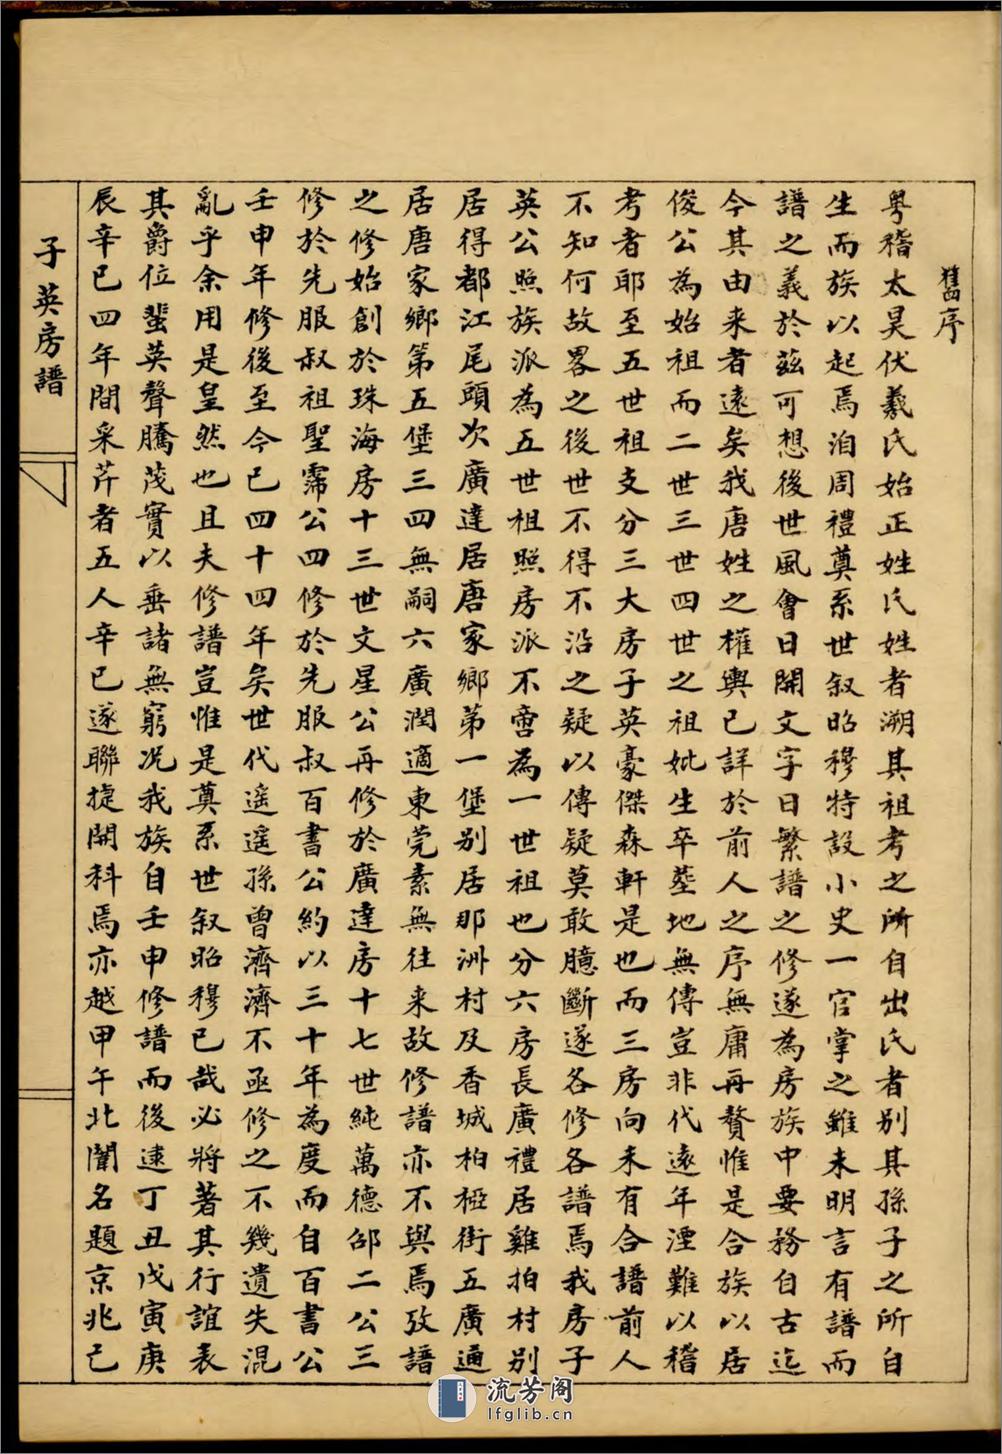 舊序
粤稽太昊伏羲氏始正姓氏姓者溯其祖考之所自出氏者别其孫子之所自
生而族以起焉洎周禮奠系世叙昭穆特設小史一官掌之雖未明言有譜而
譜之義於兹可想後世風會日開文字日繁譜之修遂為房族中要務自古迄
今其由来者遠矣我唐姓之權輿已詳於前人之序無庸再贅惟是合族以居
俊公為始祖而二世三世四世之祖妣生卒塟地無傳豈非代遠年湮難以稽
考者耶至五世祖支分三大房子英豪傑森軒是也而三房向未有合譜前人
不知何故畧之後世不得不沿之疑以傳疑莫敢臆斷遂各修各譜焉我房子
英公照族派為五世祖照房派不啻為一世祖也分六房長廣禮居雞拍村别
居得都江尾頭次廣達居唐家鄉第一堡别居那洲村及香城柏椏街五廣通
居唐家鄉第五堡三四無嗣六廣潤適東莞素無往来故修譜亦不與焉攷譜
之修始創於珠海房十三世文星公再修於廣達房十七世純萬德邵二公三
修於先服叔祖聖霈公四修於先服叔百書公約以三十年為度而自百書公
壬申年修後至今已四十四年矣世代遥遥孫曾濟濟不亟修之不幾遺失混
亂乎余用是皇然也且夫修譜豈惟是奠系世叙昭穆已哉必將著其行誼表
其爵位蜚英聲騰茂實以垂諸無窮况我族自壬申修譜而後逮丁丑戊寅庚
辰辛巳四年間采芹者五人辛巳遂聯捷開科焉亦越甲午北闈名題京兆己
子英房譜
流芳阁
lfglib.cn